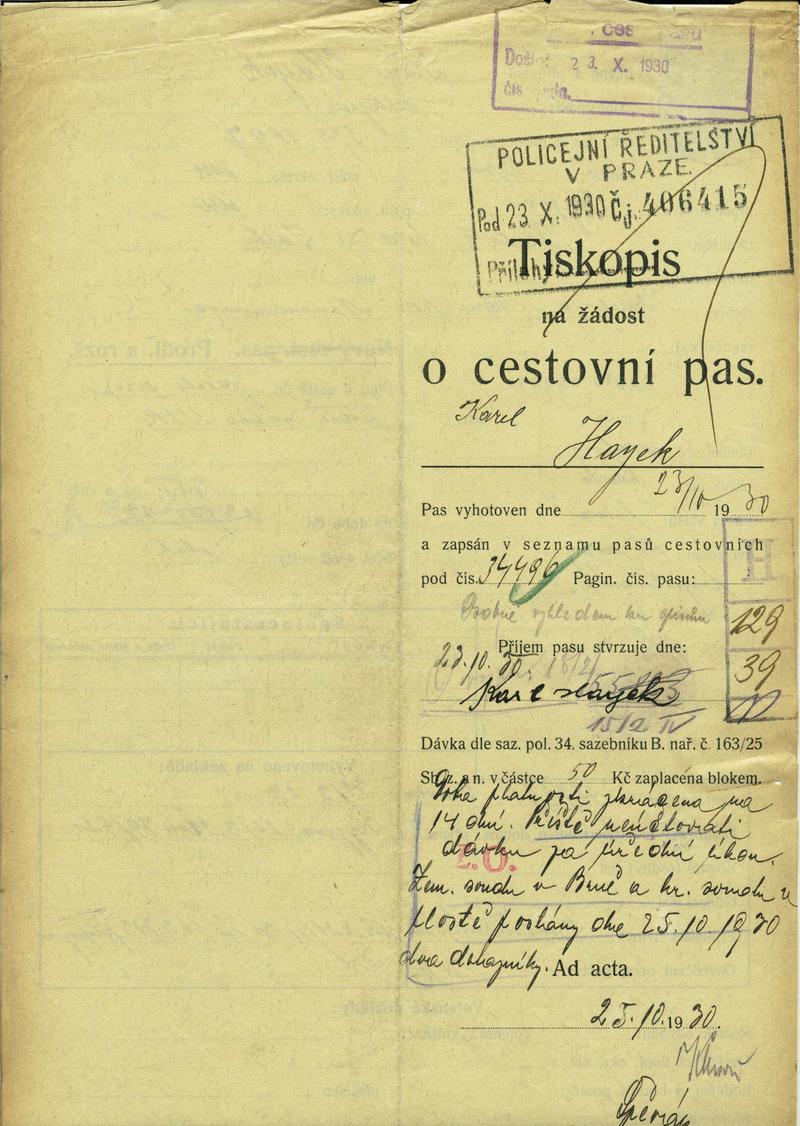 . ces. pasů
Došlo: 23. X. 1930
čís.
POLICEJNÍ ŘEDITELSTVÍ
V PRAZE.
Pod 23. X. 1930 Čj. 406415
Přílohy
Tiskopis
na žádost
o cestovní pas.
Karel
Hayek
Pas vyhotoven dne 23/10 1930
a zapsán v seznamu pasů cestovních
pod čís. 34496 Pagin. čís. pasu:
H
Osobně vyhledem ku spisům
129
Příjem pasu stvrzuje dne:
23.10.30.
39
Karel Hayek
15/2 IV
Dávka dle saz. pol. 34. sazebníku B. nař. č. 163/25
Sb. z. a n. v částce 50 Kč zaplacena blokem.
Doba platnosti zkrácena na
14 dní. Příště neúčtovati
dávku za úřední úkon.
Zem. soudu v Brně a kr. soudu v
poslány dne 25.10.1930
dva dotazníky. Ad acta.
25.10.1930.